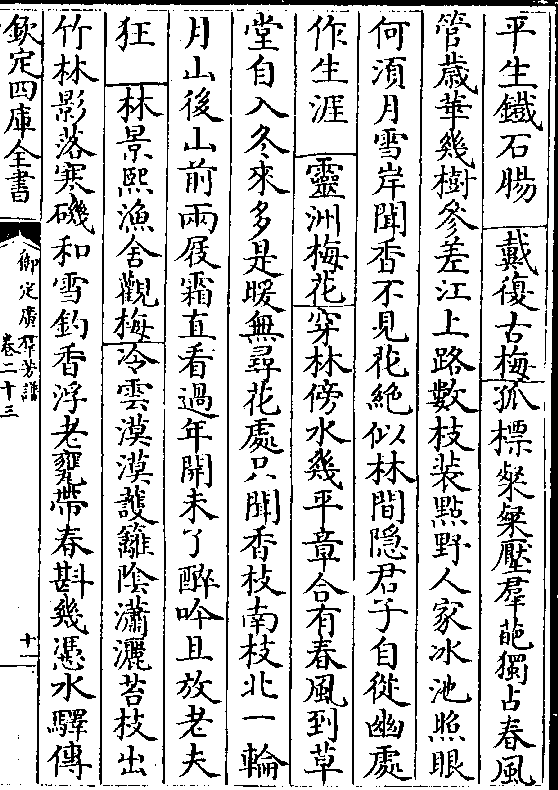 平生鐵石腸　戴復古梅孤標粲粲壓羣葩獨占春風
管歳華幾樹參差江上路數枝裝點野人家冰池照眼
何須月雪岸聞香不見花絶似林間隠君子自從幽處
作生涯　靈洲梅花穿林傍水幾平章合有春風到草
堂自入冬來多是暖無尋花處只聞香枝南枝北一輪
月山後山前兩屐霜直看過年開未了醉吟且放老夫
狂　林景熙漁舍觀梅冷雲漠漠護籬隂瀟灑苔枝出
竹林影落寒磯和雪釣香浮老甕帶春斟幾憑水驛傳
欽定四庫全書
御定廣羣芳譜
卷二十三
十一